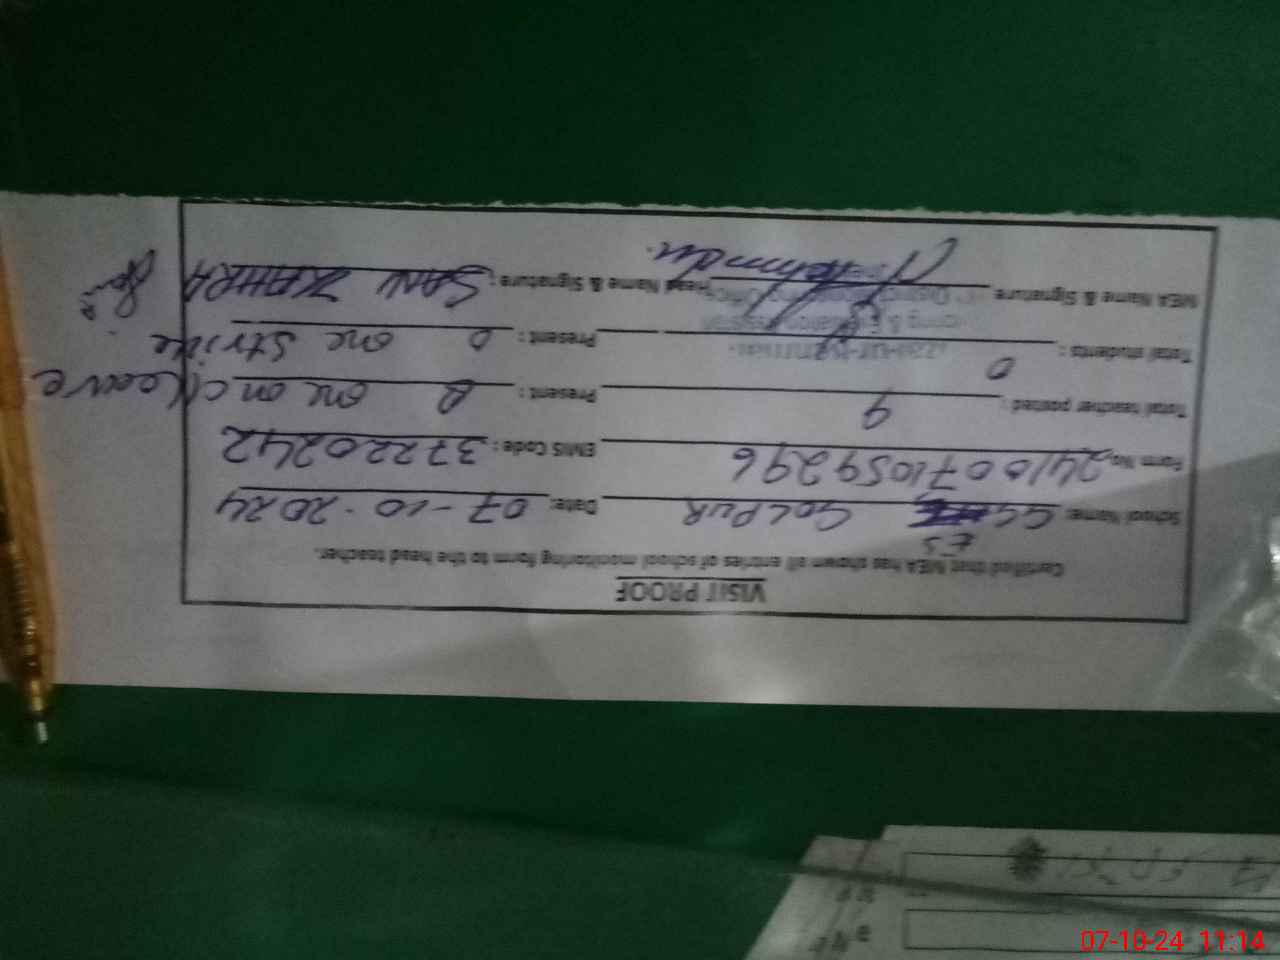 VISIT PROOF
Certified that MEA has shown all entries of school monitoring form to the head teacher.
School Name: GG ES GOLPUR Date: 07-10-2024
Form No. 2410071059296 EMIS Code: 37220242
Total teacher posted: 9 Present: one on c/leave
Total students: 0 Present: 0 one strike
MEA Name & Signature: Head Name & Signature: SAN ZAHRA
07-10-24 11:14